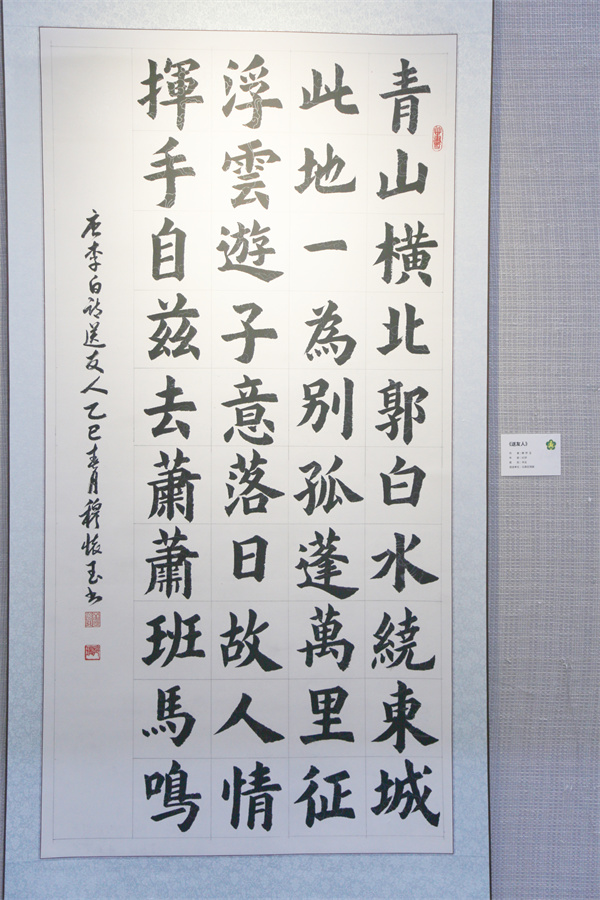 青山橫北郭白水繞東城
此地一為別孤蓬萬里征
浮雲遊子意落日故人情
揮手自茲去蕭蕭班馬鳴
唐李白詩送友人乙巳春月穆懷玉書
《送友人》